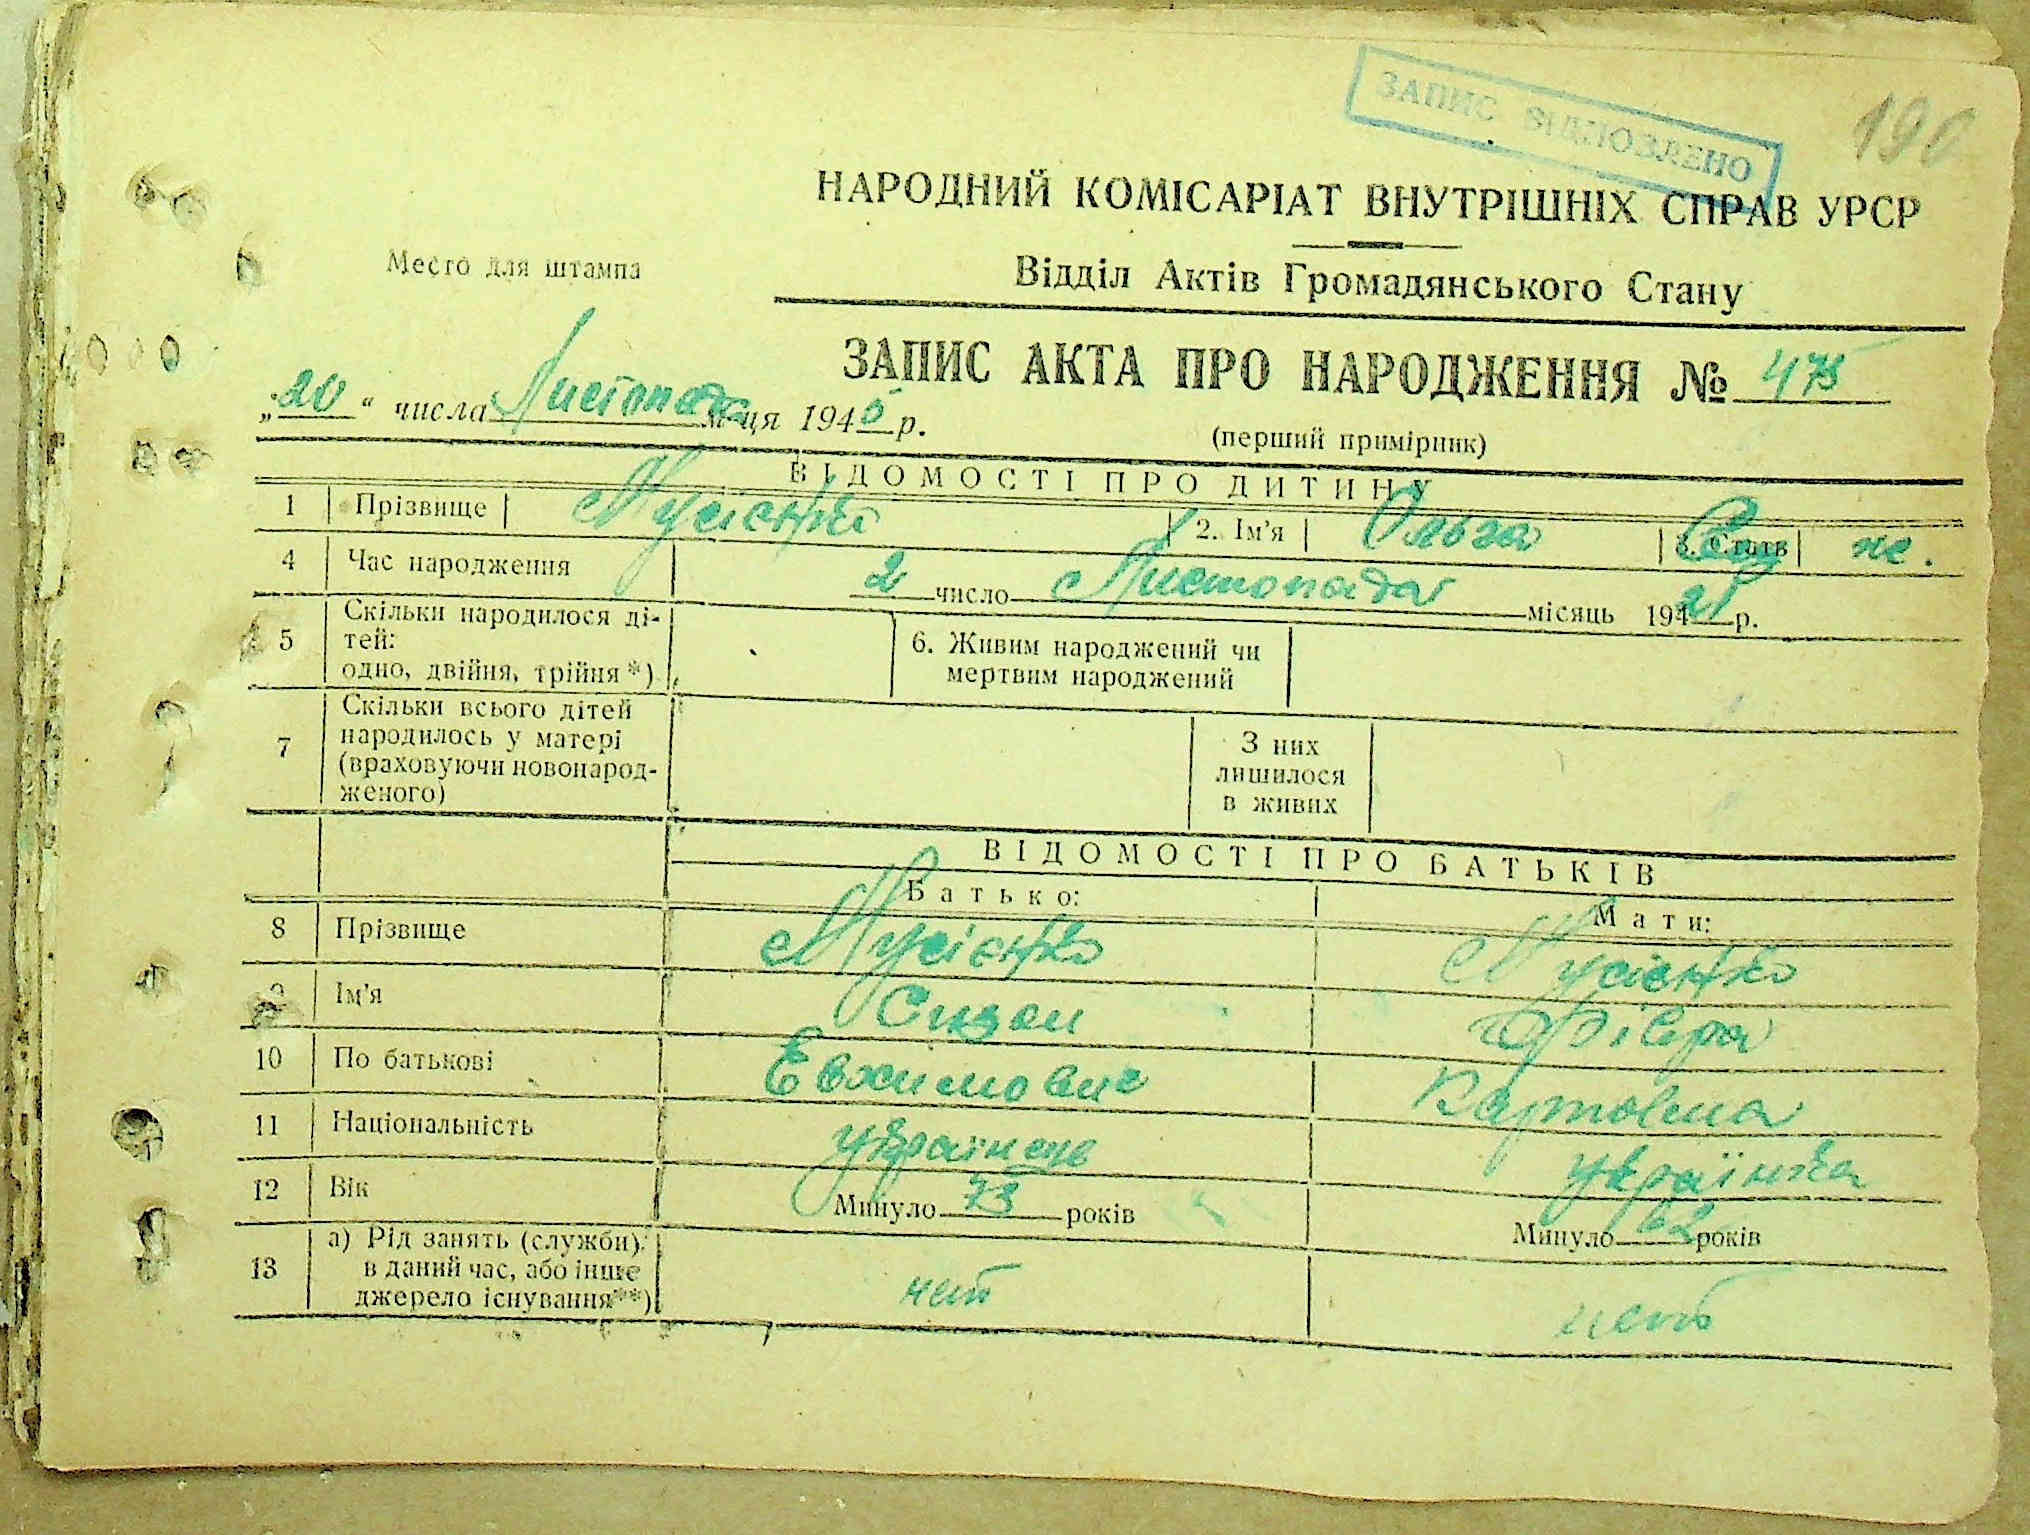 ЗАПИС ВІДНОВЛЕНО
190
НАРОДНИЙ КОМІСАРІАТ ВНУТРІШНІХ СПРАВ УРСР
Место для штампа
Відділ Актів Громадянського Стану
ЗАПИС АКТА ПРО НАРОДЖЕННЯ № 475
„20“ числа Листопада м-ця 1945 р.
(перший примірник)
ВІДОМОСТІ ПРО ДИТИНУ
1 Прізвище Мусієнко 2. Ім'я Ольга 3. Стать ж.
4 Час народження 2 число Листопада місяць 1921 р.
5 Скільки народилося ді-
тей:
одно, двійня, трійня *)
6. Живим народжений чи
мертвим народжений
7 Скільки всього дітей
народилось у матері
(враховуючи новонарод-
женого)
З них
лишилося
в живих
ВІДОМОСТІ ПРО БАТЬКІВ
Батько: Мати:
8 Прізвище Мусієнко Мусієнко
9 Ім'я Сизон
10 По батькові Евхимович Карповна
11 Національність українець українка
12 Вік Минуло 73 років Минуло 62 років
13 а) Рід занять (служби)
в даний час, або інше
джерело існування**)
нет нет